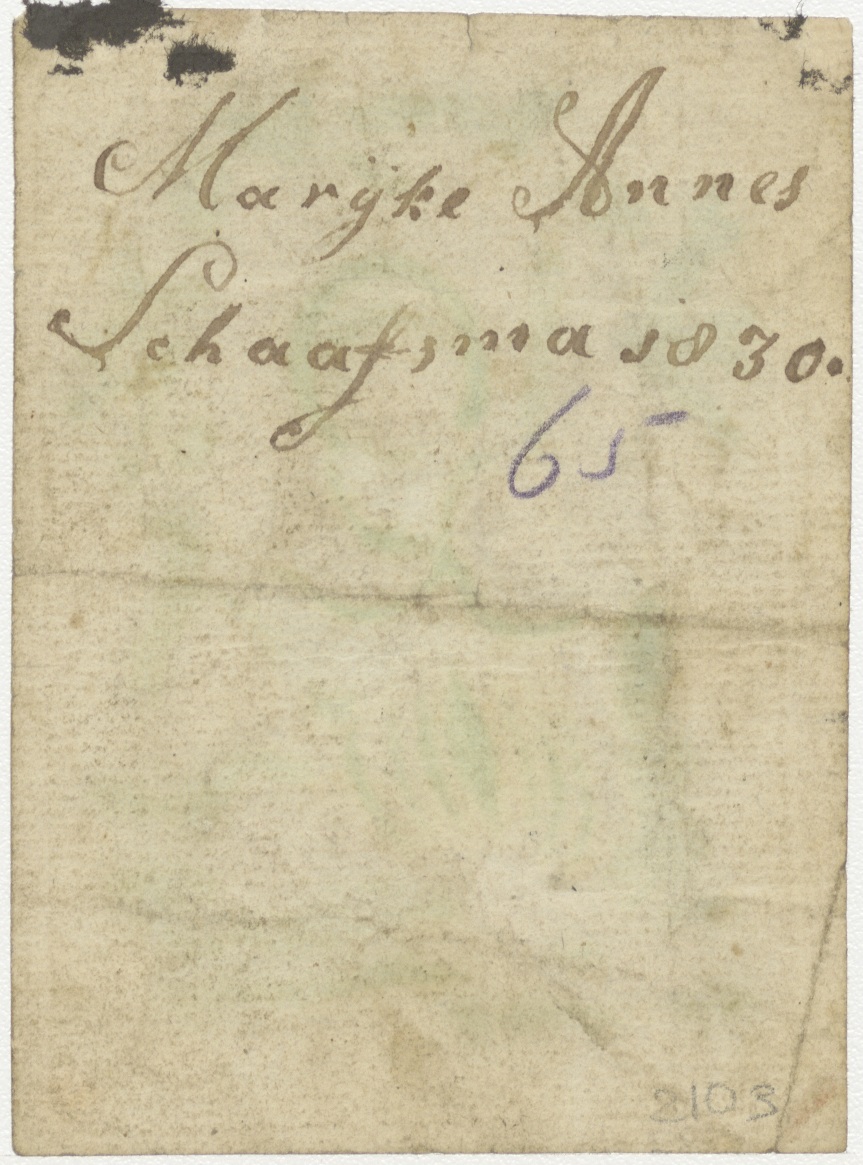 Maryke Annes
Schaafsma 1830.
65
2103